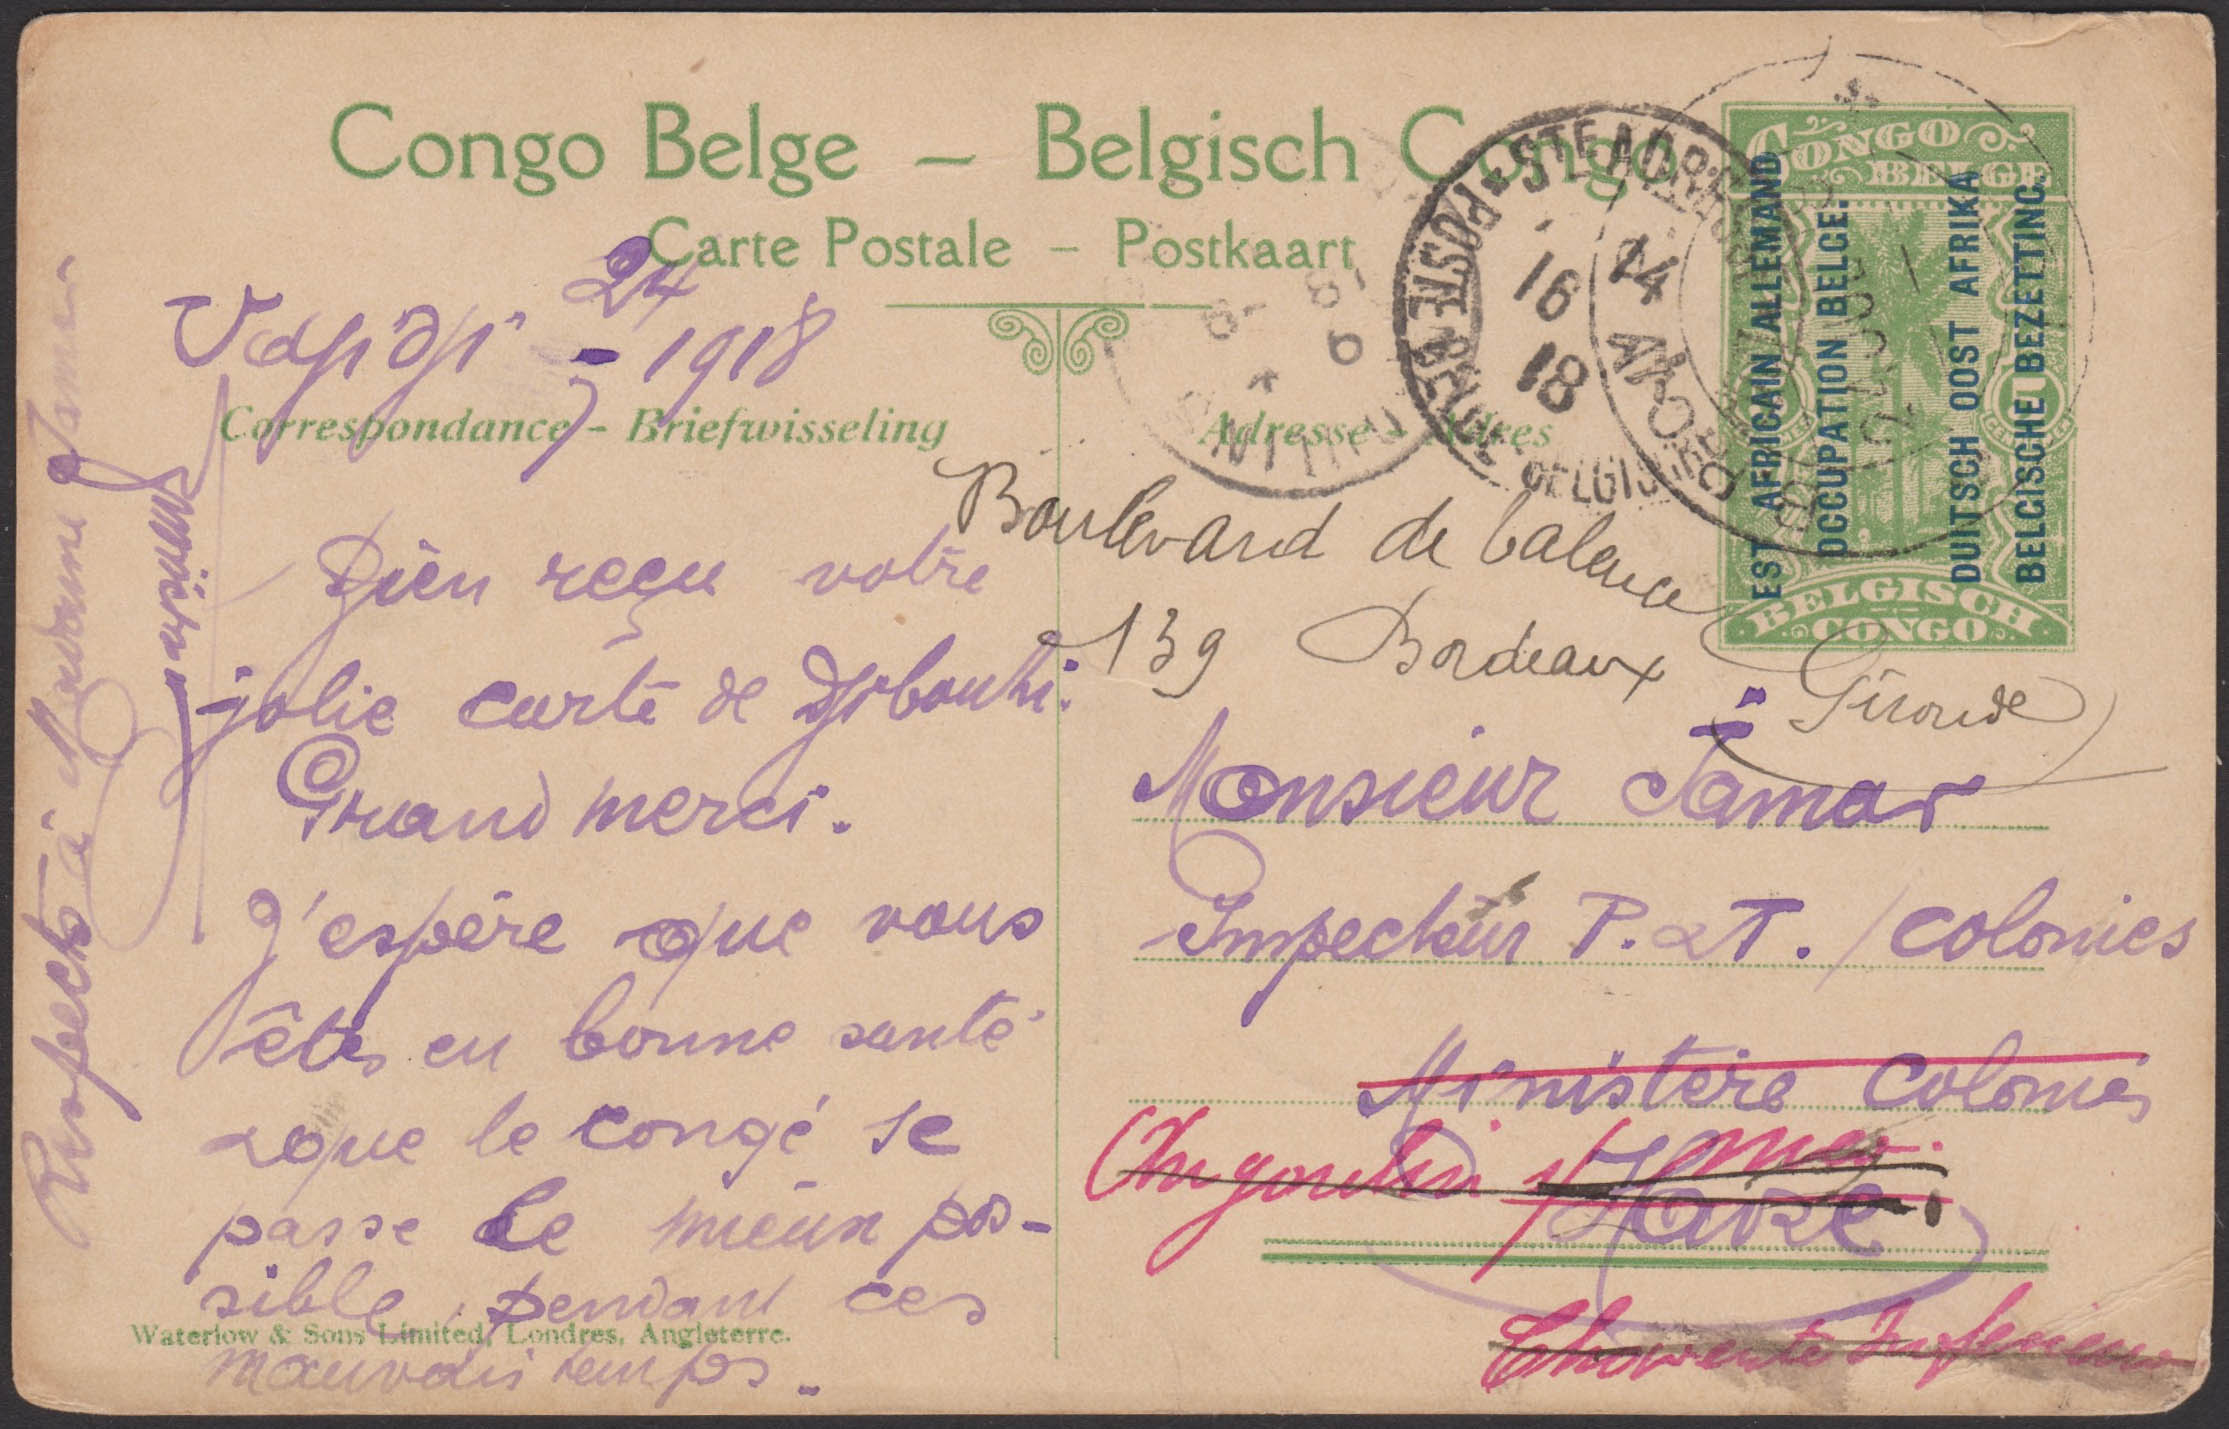 Congo Belge – Belgisch Congo
Carte Postale – Postkaart
CONGO BELGE
EST AFRICAIN ALLEMAND
OCCUPATION BELGE.
DUITSCH OOST AFRIKA
BELGISCHE BEZETTING.
BELGISCH CONGO
STE ADRESSE
POSTE BELGE
BELGISCHE
16
14
18
24 - 1918
Correspondance - Briefwisseling
Adresse - Adres
Bien reçu votre
jolie carte de Djibouti.
Grand merci.
J'espère que vous
êtes en bonne santé
& que le congé se
passe le mieux pos-
sible, pendant ces
mauvais temps.
Waterlow & Sons Limited, Londres, Angleterre.
Respects à Madame Jamar
Boulevard de
139 Bordeaux
Gironde
Monsieur Jamar
Inspecteur P. & T. / Colonies
Ministère Colonies
Havre.
Angoulin s/ mer.
Charente Inférieure